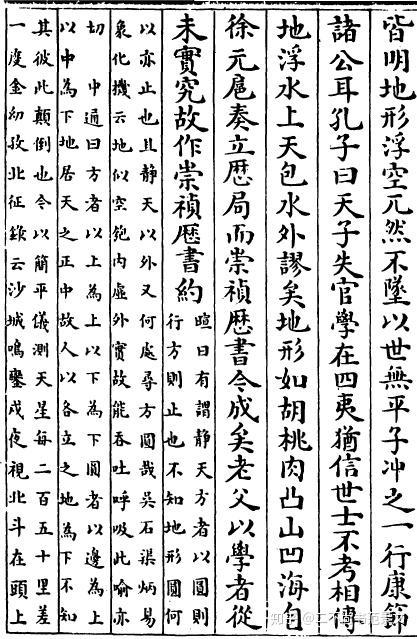 皆明地形浮空兀然不墜以世無平子冲之一行康節
諸公耳孔子曰天子失官學在四夷猶信世士不考相傳
地浮水上天包水外謬矣地形如胡桃肉凸山凹海自
徐元扈奏立厯局而崇禎厯書今成矣老父以學者從
未實究故作崇禎厯書約
暄曰有謂靜天方者以圓則
行方則止也不知地形圓何
以亦止也且靜天以外又何處尋方圓哉吳石渠炳易
象化機云地似空匏內虛外實故能吞吐呼吸此喻亦
切　中通曰方者以上為上以下為下圓者以邊為上
以中為下地居天之正中故人以各立之地為下不知
其彼此顛倒也今以簡平儀測天星每二百五十里差
一度金幼孜北征錄云沙城鳴鑾戍夜視北斗在頭上